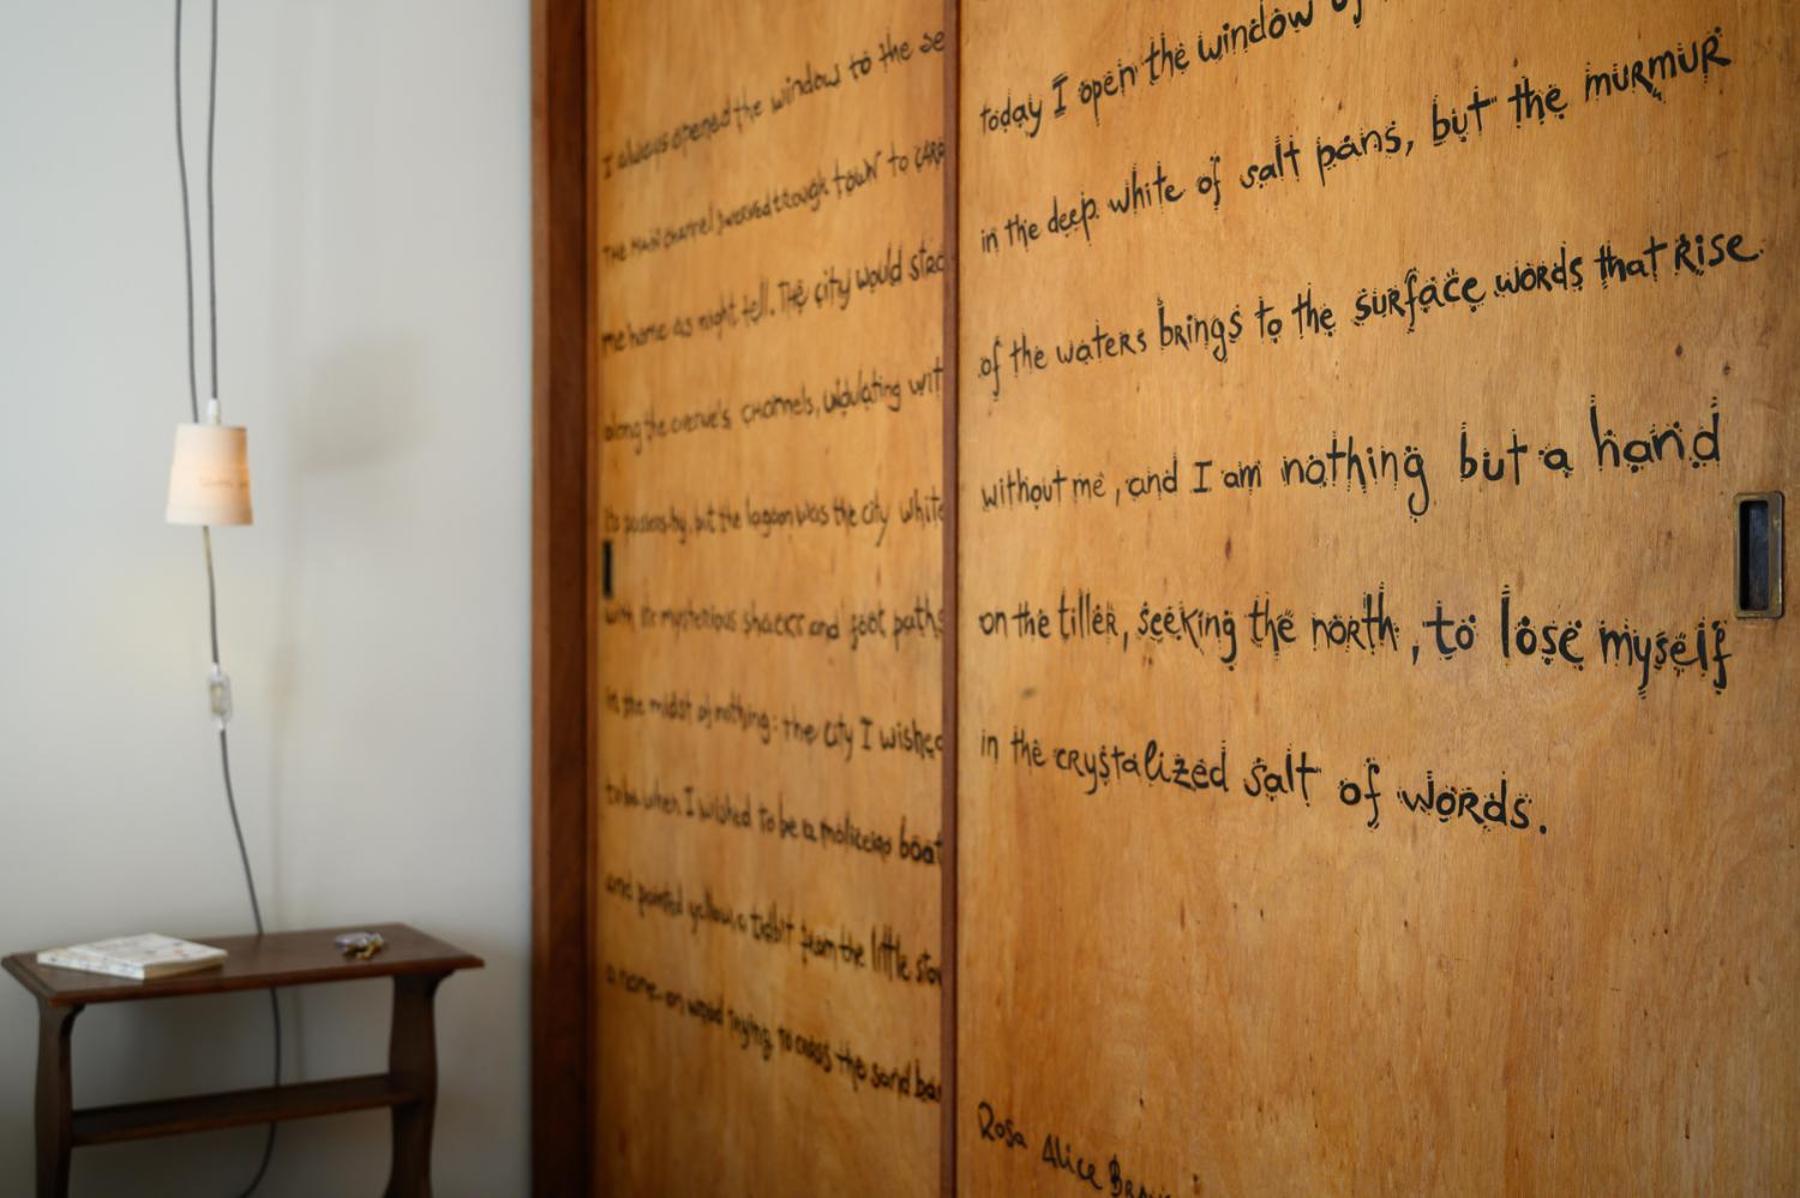 I always opened the window to the se
The main channel swerved trough town to
me home as night fell. The city would
along the avenue's channels, undulating wit
its passers-by, but the lagoon was the city white
with its mysterious shacks and foot paths
in the midst of nothing: the city I wished
to be when I wished to be a moliceiro boat
and painted yellow, a tidbit from the little
a name on wood trying to cross the sand ba
today I open the window of
in the deep white of salt pans, but the murmur
of the waters brings to the surface words that rise
without me, and I am nothing but a hand
on the tiller, seeking the north, to lose myself
in the crystalized salt of words.
Rosa Alice